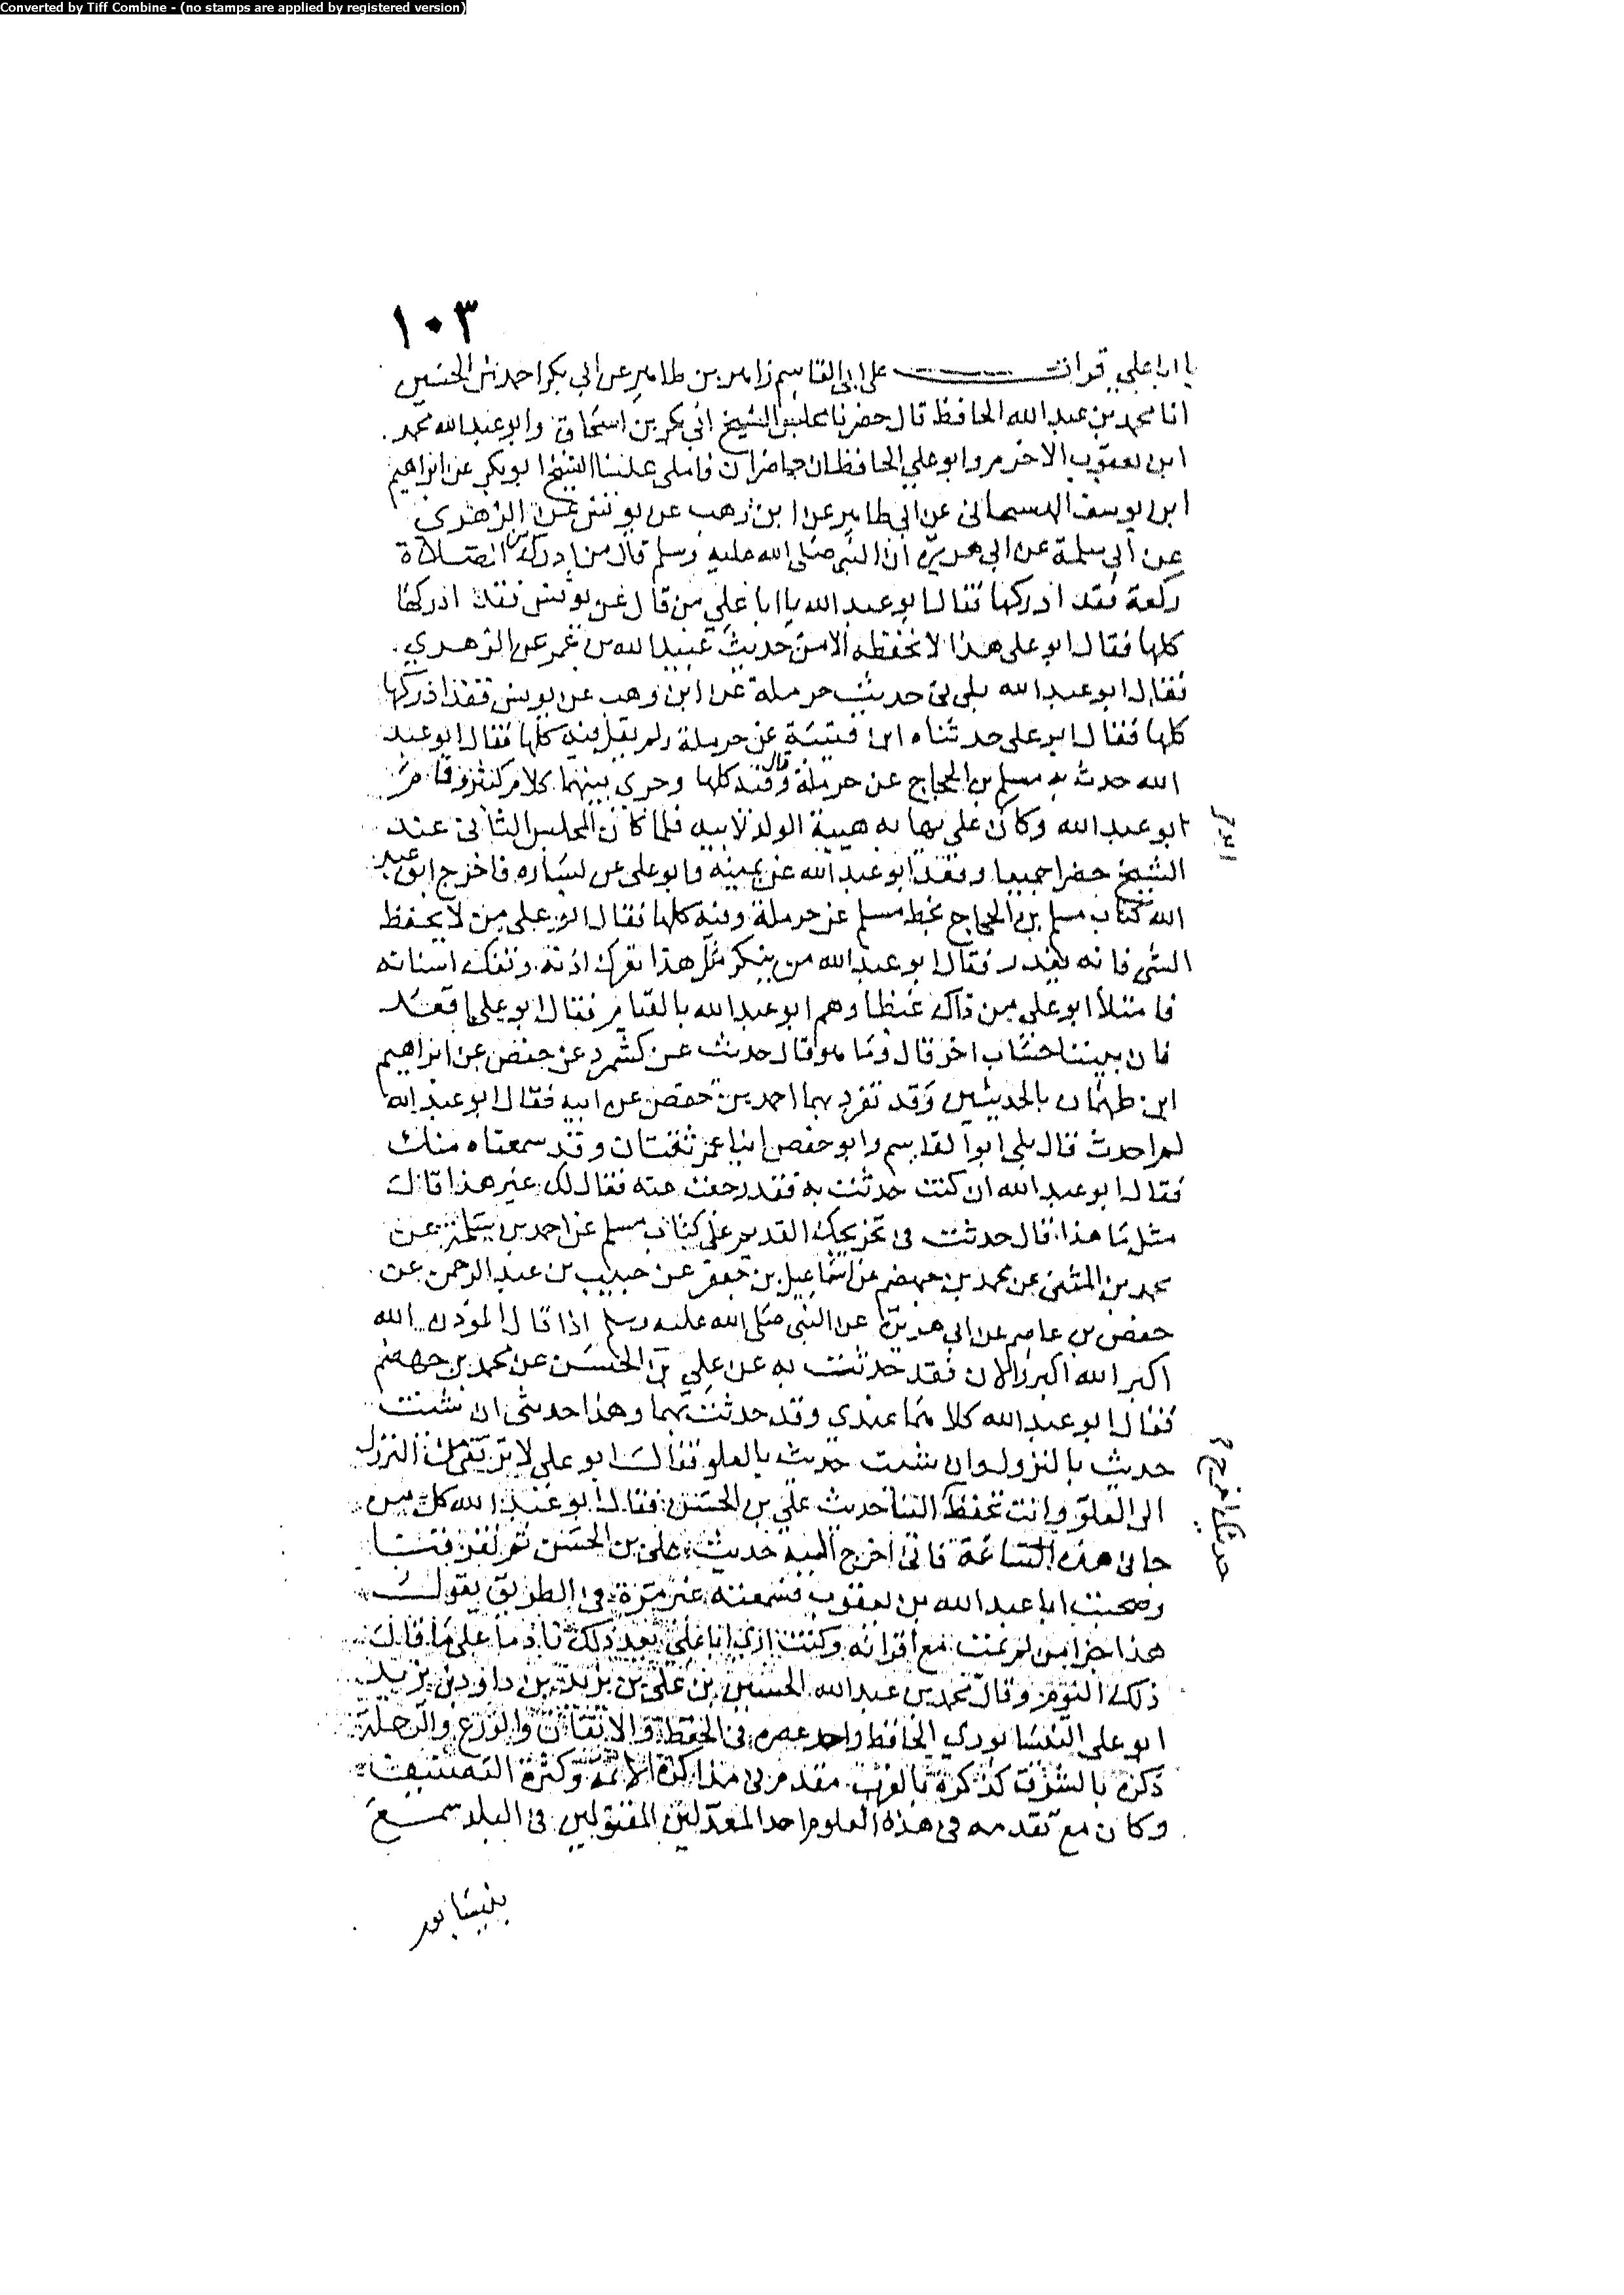 Converted by Tiff Combine - (no stamps are applied by registered version)
١٠٣
يا ابا علي قرات على ابي القاسم زاهر بن طاهر عن ابي بكر احمد بن الحسين
انا محمد بن عبد الله الحافظ قال حضرنا مجلس الشيخ ابي بكر بن اسحاق وابو عبد الله محمد
ابن يعقوب الاخرم وابو علي الحافظان حاضران فاملى علينا الشيخ ابو بكر عن ابراهيم
ابن يوسف الهسنجاني عن ابي طاهر عن ابن وهب عن يونس عن الزهري
عن ابي سلمة عن ابي هريرة ان النبي صلى الله عليه وسلم قال من ادرك من الصلاة
ركعة فقد ادركها فقال ابو عبد الله يا ابا علي من قال عن يونس فقد ادركها
كلها فقال ابو علي هذا لا نحفظه الا من حديث عبيد الله بن عمر عن الزهري
فقال ابو عبد الله بلى في حديث حرملة عن ابن وهب عن يونس فقد ادركها
كلها فقال ابو علي حدثناه ابن قتيبة عن حرملة ولم يقل فيه كلها فقال ابو عبد
الله حدث به مسلم بن الحجاج عن حرملة وقال فيه كلها وجرى بينهما كلام كثير وقام
ابو عبد الله وكان علي يهابه هيبة الولد لابيه فلما كان المجلس الثاني عند
الشيخ حضرا جميعا وقعد ابو عبد الله عن يمينه وابو علي عن يساره فاخرج ابو عبد
الله كتاب مسلم بن الحجاج بخط مسلم عن حرملة وفيه كلها فقال ابو علي من لا يحفظ
الشي فانه يعذر فقال ابو عبد الله من ينكر مثل هذا تعرك اذنه وتفك اسنانه
فامتلأ ابو علي من ذاك غيظا وهم ابو عبد الله بالقيام فقال ابو علي اقعد
فان بيننا حساب اخر قال وما هو قال حدثت عن كشمرد عن حفص عن ابراهيم
ابن طهمان بالحديثين وقد تفرد بهما احمد بن حفص عن ابيه فقال ابو عبد الله
لم احدث قال بلى ابو القاسم وابو حفص ابنا عمر ثقتان وقد سمعناه منك
فقال ابو عبد الله ان كنت حدثت به فقد رجعت عنه فقال لك غير هذا قال
مثل ما هذا قال حدثت في تخريجك القديم على كتاب مسلم عن احمد بن سلمة عن
محمد بن المثنى عن محمد بن جهضم عن اسماعيل بن جعفر عن حبيب بن عبد الرحمن عن
حفص بن عاصم عن ابي هريرة عن النبي صلى الله عليه وسلم اذا قال المؤذن الله
اكبر الله اكبر والان فقد حدثت به عن علي بن الحسن عن محمد بن جهضم
فقال ابو عبد الله كلاهما عندي وقد حدثت بهما وهذا حديثي ان شئت
حديث بالنزول وان شئت حديث بالعلو فقال ابو علي لا ترتقي من النزول
الى العلو وانت تحفظ الينا حديث علي بن الحسن فقال ابو عبد الله كل من
جاني هذه الساعة فاني اخرج اليه حديث علي بن الحسن ثم تفرقنا
وصحبت ابا عبد الله بن يعقوب فسمعته غير مرة في الطريق يقول
هذا جزا من لم يمت مع اقرانه وكنت ارى ابا علي بعد ذلك نادما على ما قال
ذلك اليوم وقال محمد بن عبد الله الحسين بن علي بن يزيد بن داود بن يزيد
ابو علي النيسابوري الحافظ واحد عصره في الحفظ والاتقان والورع والرحلة
ذكره بالشرق كذكره بالغرب مقدم في مذاكرة الائمة وكثرة التصنيف
وكان مع تقدمه في هذه العلوم احد المعدلين المقبولين في البلد سمع
بنيسابور